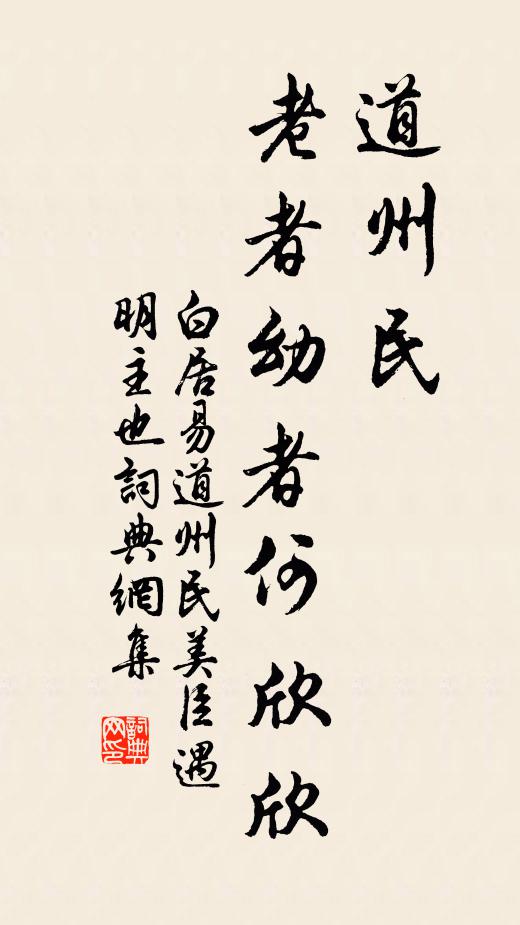 道州民
老者幼者何欣欣
白居易道州民美臣遇
明主也詞典網集
詞典
网印